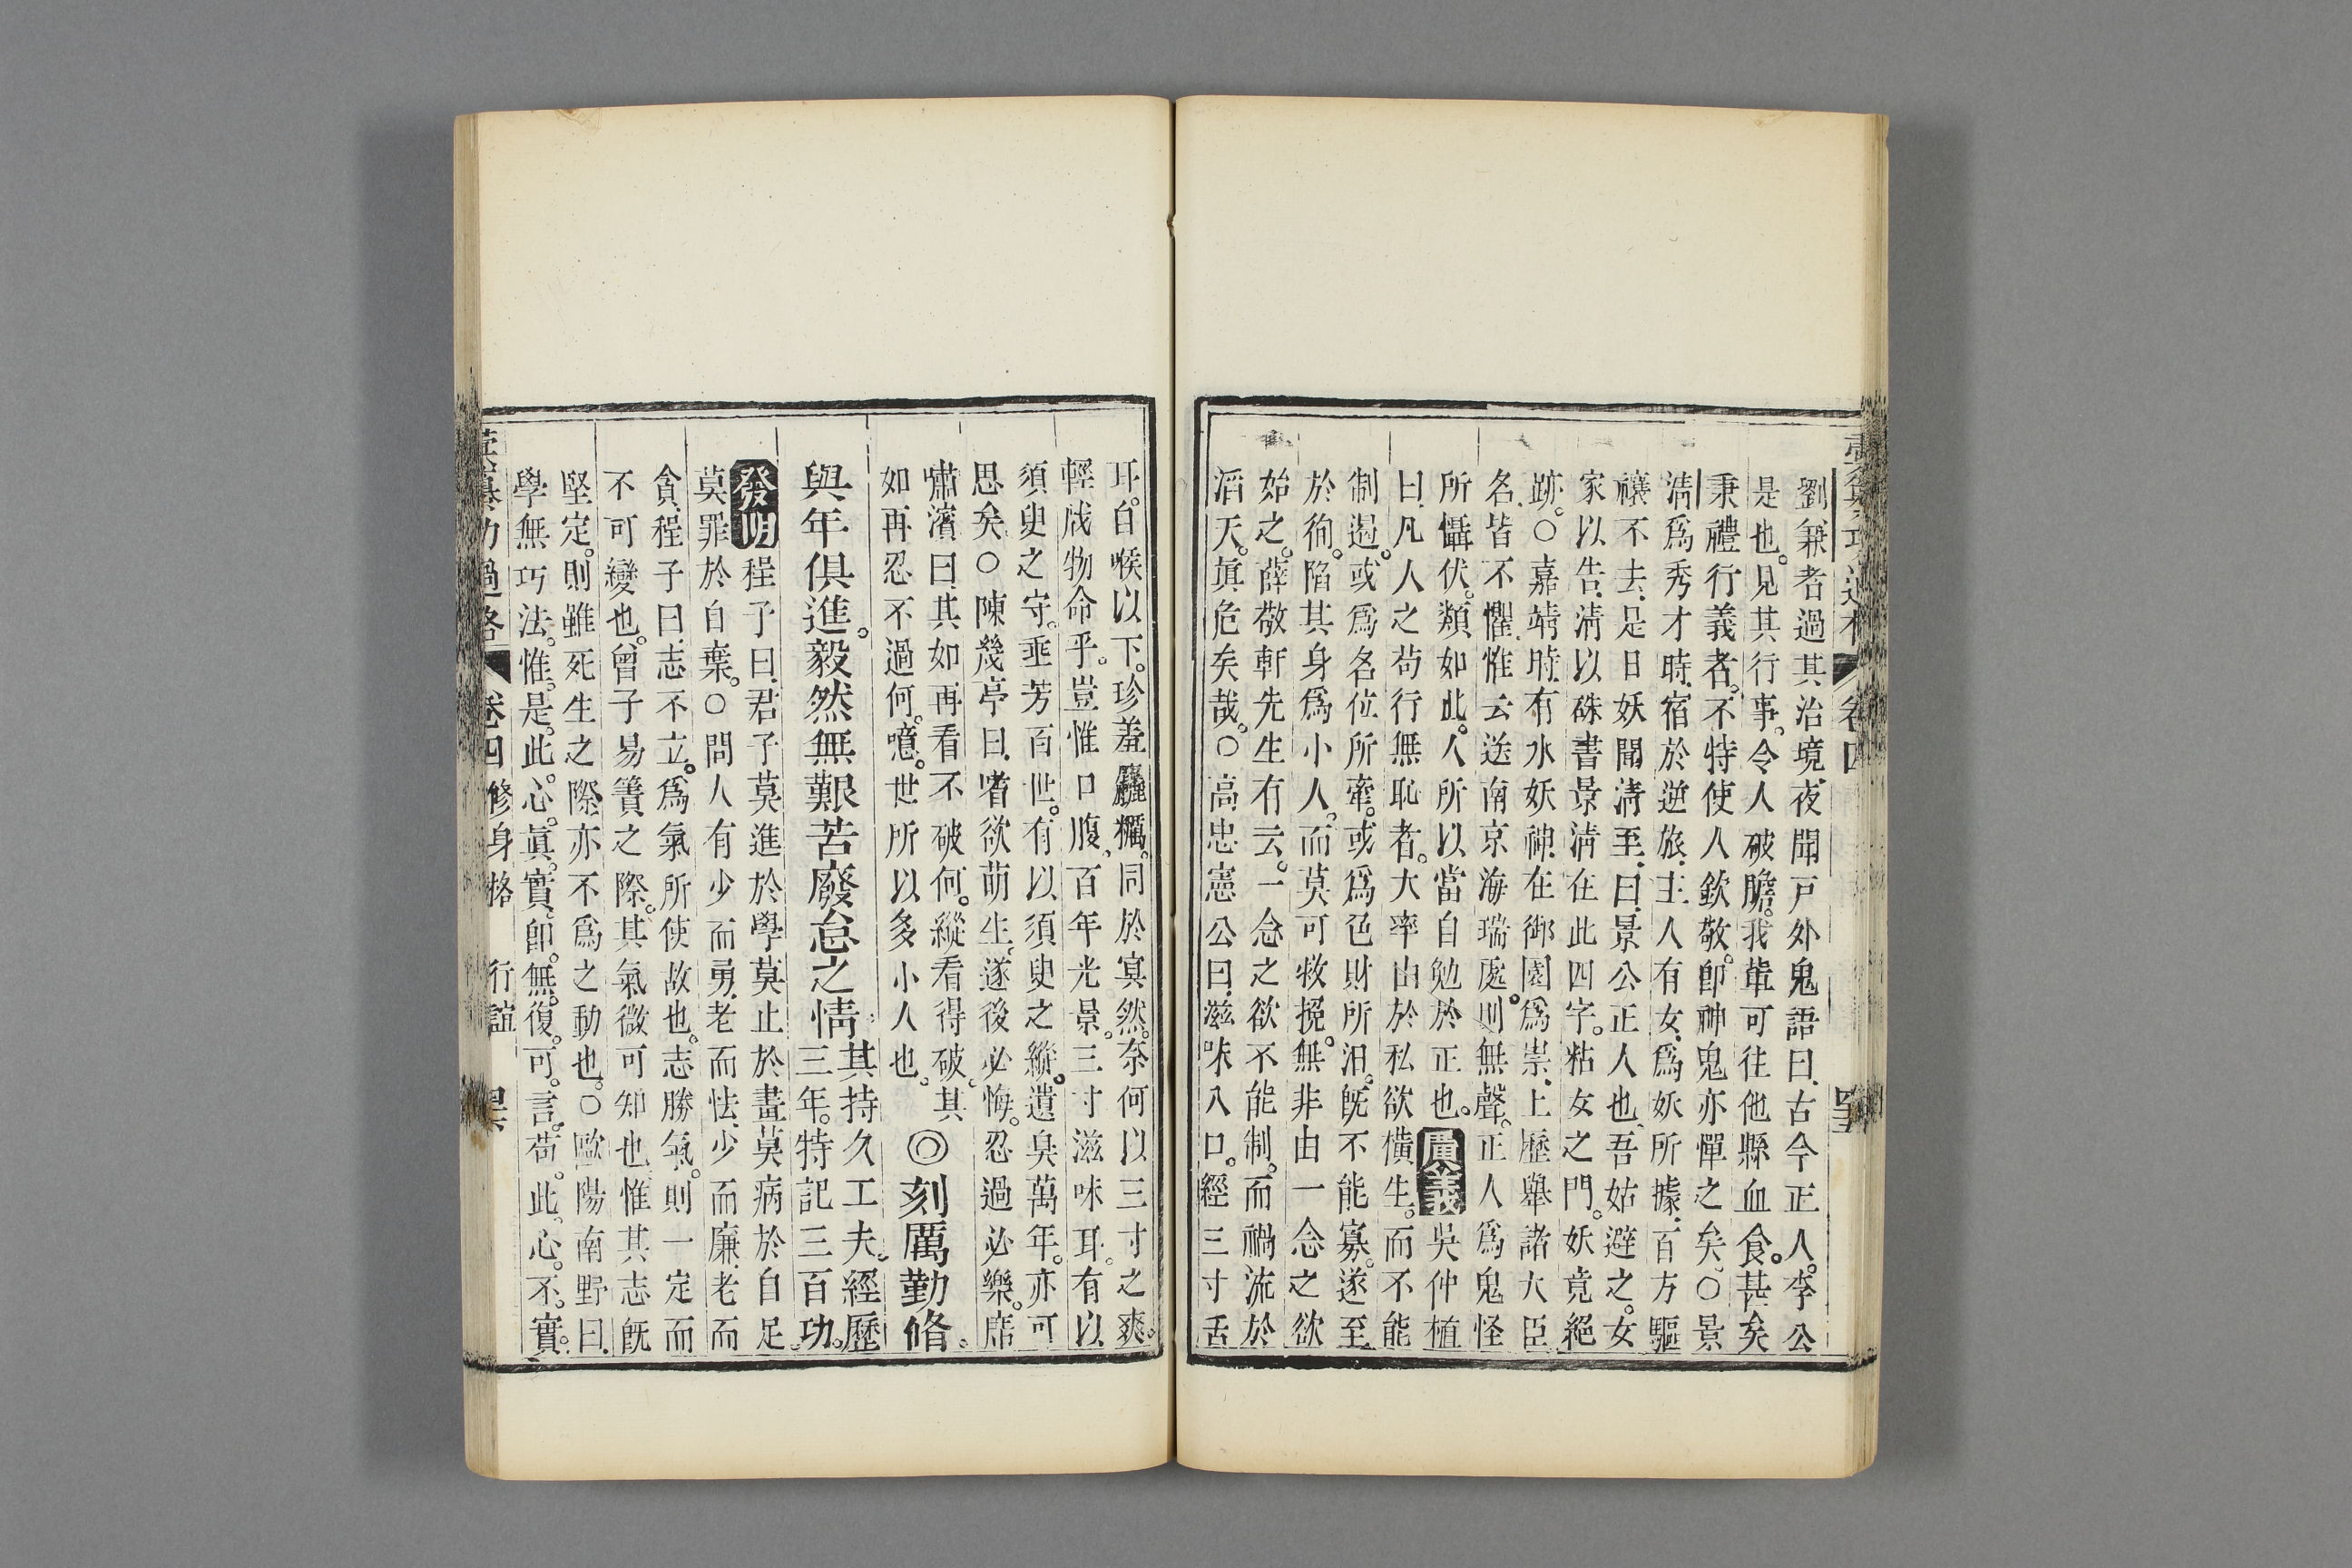 劉兼者過其治境夜聞戸外鬼語曰古今正人李公
是也見其行事令人破膽我輩可往他縣血食甚矣
秉禮行義者不特使人欽敬卽神鬼亦憚之矣○景
淸爲秀才時宿於逆旅主人有女爲妖所據百方驅
禳不去是日妖聞淸至曰景公正人也吾姑避之女
家以告淸以硃書景淸在此四字粘女之門妖竟絕
跡○嘉靖時有水妖神在御園爲祟上歷舉諸大臣
名皆不懼惟云送南京海瑞處則無聲正人爲鬼怪
所懾伏類如此人所以當自勉於正也廣義吳仲植
曰凡人之苟行無恥者大率由於私欲橫生而不能
制遏或爲名位所牽或爲色財所汨旣不能寡遂至
於徇陷其身爲小人而莫可救挽無非由一念之欲
始之薛敬軒先生有云一念之欲不能制而禍流於
滔天眞危矣哉○高忠憲公曰滋味入口經三寸舌
耳自喉以下珍羞麤糲同於冥然奈何以三寸之爽
輕戕物命乎豈惟口腹百年光景三寸滋味耳有以
須臾之守垂芳百世有以須臾之縱遺臭萬年亦可
思矣○陳幾亭曰嗜欲萌生遂後必悔忍過必樂席
嘯濱曰其如再看不破何縱看得破其
如再忍不過何噫世所以多小人也
◎刻厲勤脩
與年俱進毅然無艱苦廢怠之情
其持久工夫經歷
三年特記三百功
發明程子曰君子莫進於學莫止於畫莫病於自足
莫罪於自棄○問人有少而勇老而怯少而廉老而
貪程子曰志不立爲氣所使故也志勝氣則一定而
不可變也曾子易簀之際其氣微可知也惟其志旣
堅定則雖死生之際亦不爲之動也○歐陽南野曰
學無巧法惟是此心眞實卽無復可言苟此心不實
卷四 修身格 行誼